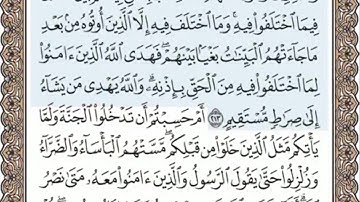 فِيمَا ٱخْتَلَفُوا۟ فِيهِ ۚ وَمَا ٱخْتَلَفَ فِيهِ إِلَّا ٱلَّذِينَ أُوتُوهُ مِنۢ بَعْدِ
مَا جَآءَتْهُمُ ٱلْبَيِّنَـٰتُ بَغْيًۢا بَيْنَهُمْ ۖ فَهَدَى ٱللَّهُ ٱلَّذِينَ ءَامَنُوا۟
لِمَا ٱخْتَلَفُوا۟ فِيهِ مِنَ ٱلْحَقِّ بِإِذْنِهِۦ ۗ وَٱللَّهُ يَهْدِى مَن يَشَآءُ
إِلَىٰ صِرَٰطٍ مُّسْتَقِيمٍ ٢١٣ أَمْ حَسِبْتُمْ أَن تَدْخُلُوا۟ ٱلْجَنَّةَ وَلَمَّا
يَأْتِكُم مَّثَلُ ٱلَّذِينَ خَلَوْا۟ مِن قَبْلِكُم ۖ مَّسَّتْهُمُ ٱلْبَأْسَآءُ وَٱلضَّرَّآءُ
وَزُلْزِلُوا۟ حَتَّىٰ يَقُولَ ٱلرَّسُولُ وَٱلَّذِينَ ءَامَنُوا۟ مَعَهُۥ مَتَىٰ نَصْرُ